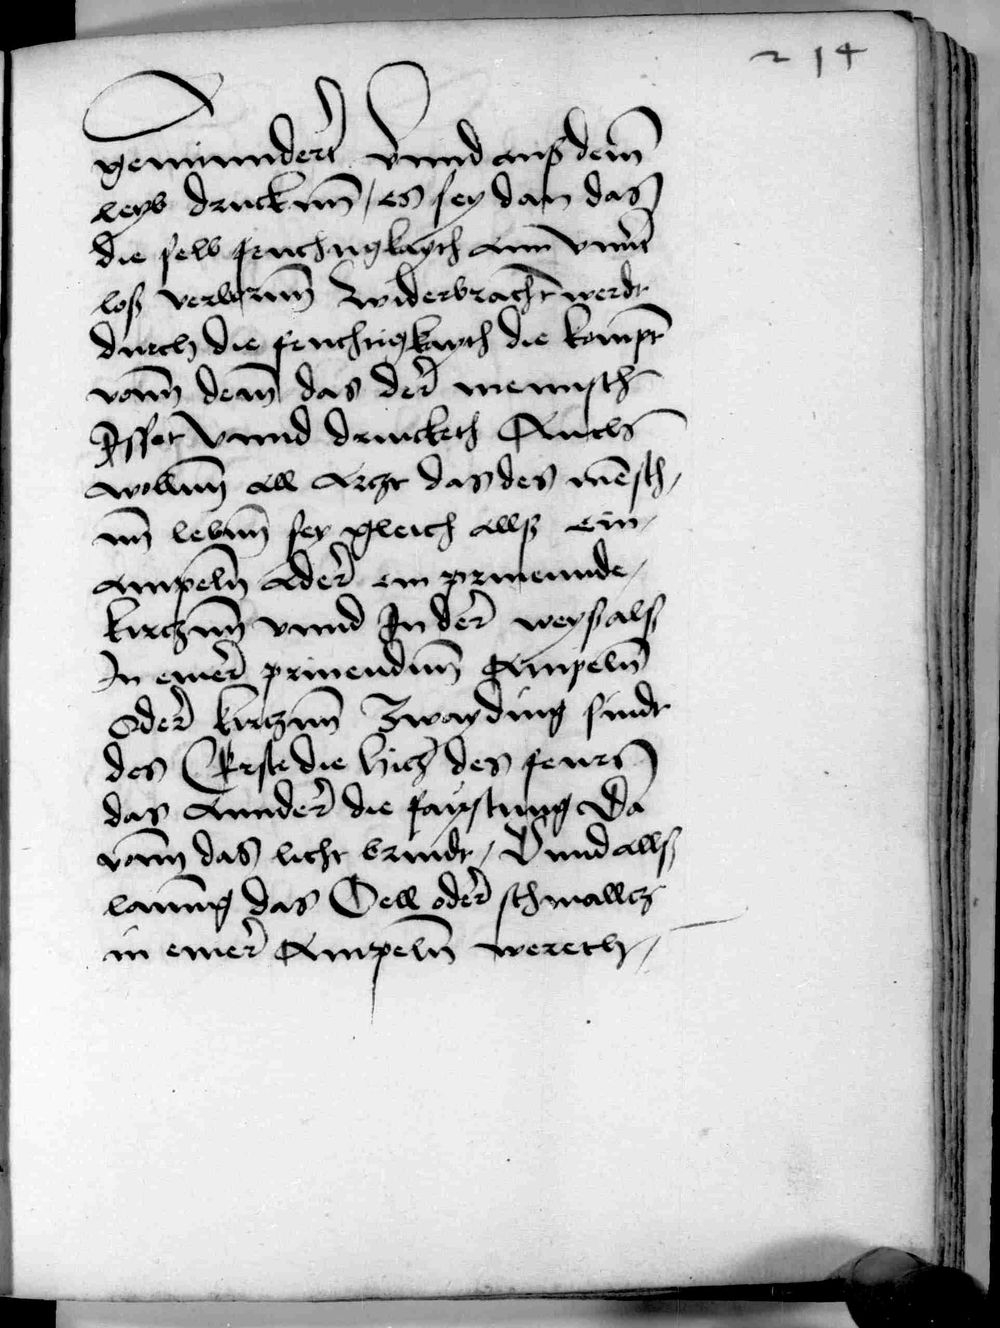 214
geminndert Vnnd auß dem
leyb druckenn / es sey dan das
die selb feuchtigkayth ann vnnt
loß verlorenn widerbracht werdt
durch die feuchtigkayth die kompt
vonn dem das der mennsch
Isset Vnnd drincketh Auch
wollenn all Arczt das des mensch /
nn lebenn sey gleich allß ein /
ampeln Ader ein prinennde /
kirczenn vnnd In der weyß alß
In einer prinendenn Ampeln
Oder kirczenn Zway ding sindt
des Erste die hicz des feurs
das Annder die faystung Da
vonn das licht brindt / Vnnd allß
lanng das Oell oder schmalcz
in einer Ampeln wereth /